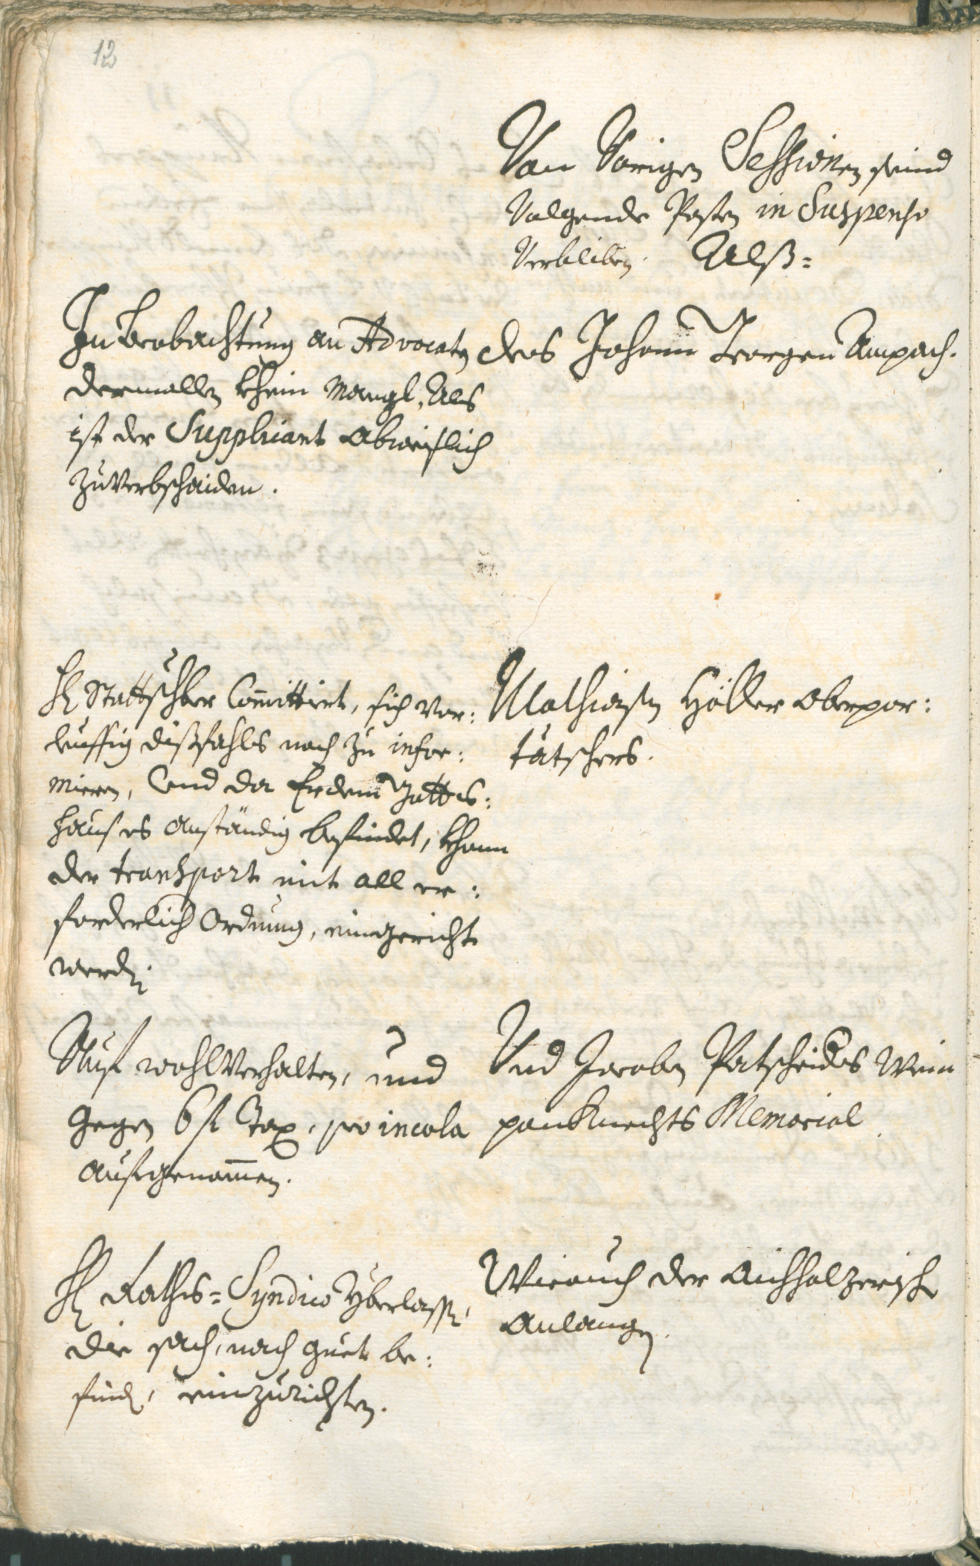 12
Von Vorigen Sessionen seind
Volgende Posten in Suspenso
Verbliben. Alß:
In Beobachtung an Advocaten
dermallen khein Mangl, Als
ist der Supplicant abweislich
zuverbschaiden.
des Johann Georgen Ampach.
H Stattschbr Com̄ittirt, sich vor:
leuffig dißfahls noch zu infor:
mieren, und da Er dem Gotts:
hauß es anständig befindet, khann
der transport mit all er:
forderlich Ordnung, eingericht
werdn.
Mathiasen Höller Oberpor:
tätschers.
Auf wohlVerhalten, und
gegen 6 fl Tax, pro incola
aufgenom̄en.
Und Jacoben Patscheiders Wein
pauKnechts Memorial
H Raths=Syndico yberlassn,
die sach, nach guet be:
findn, einzurichten.
Wie auch der Aichholzerisch
Anlangen.